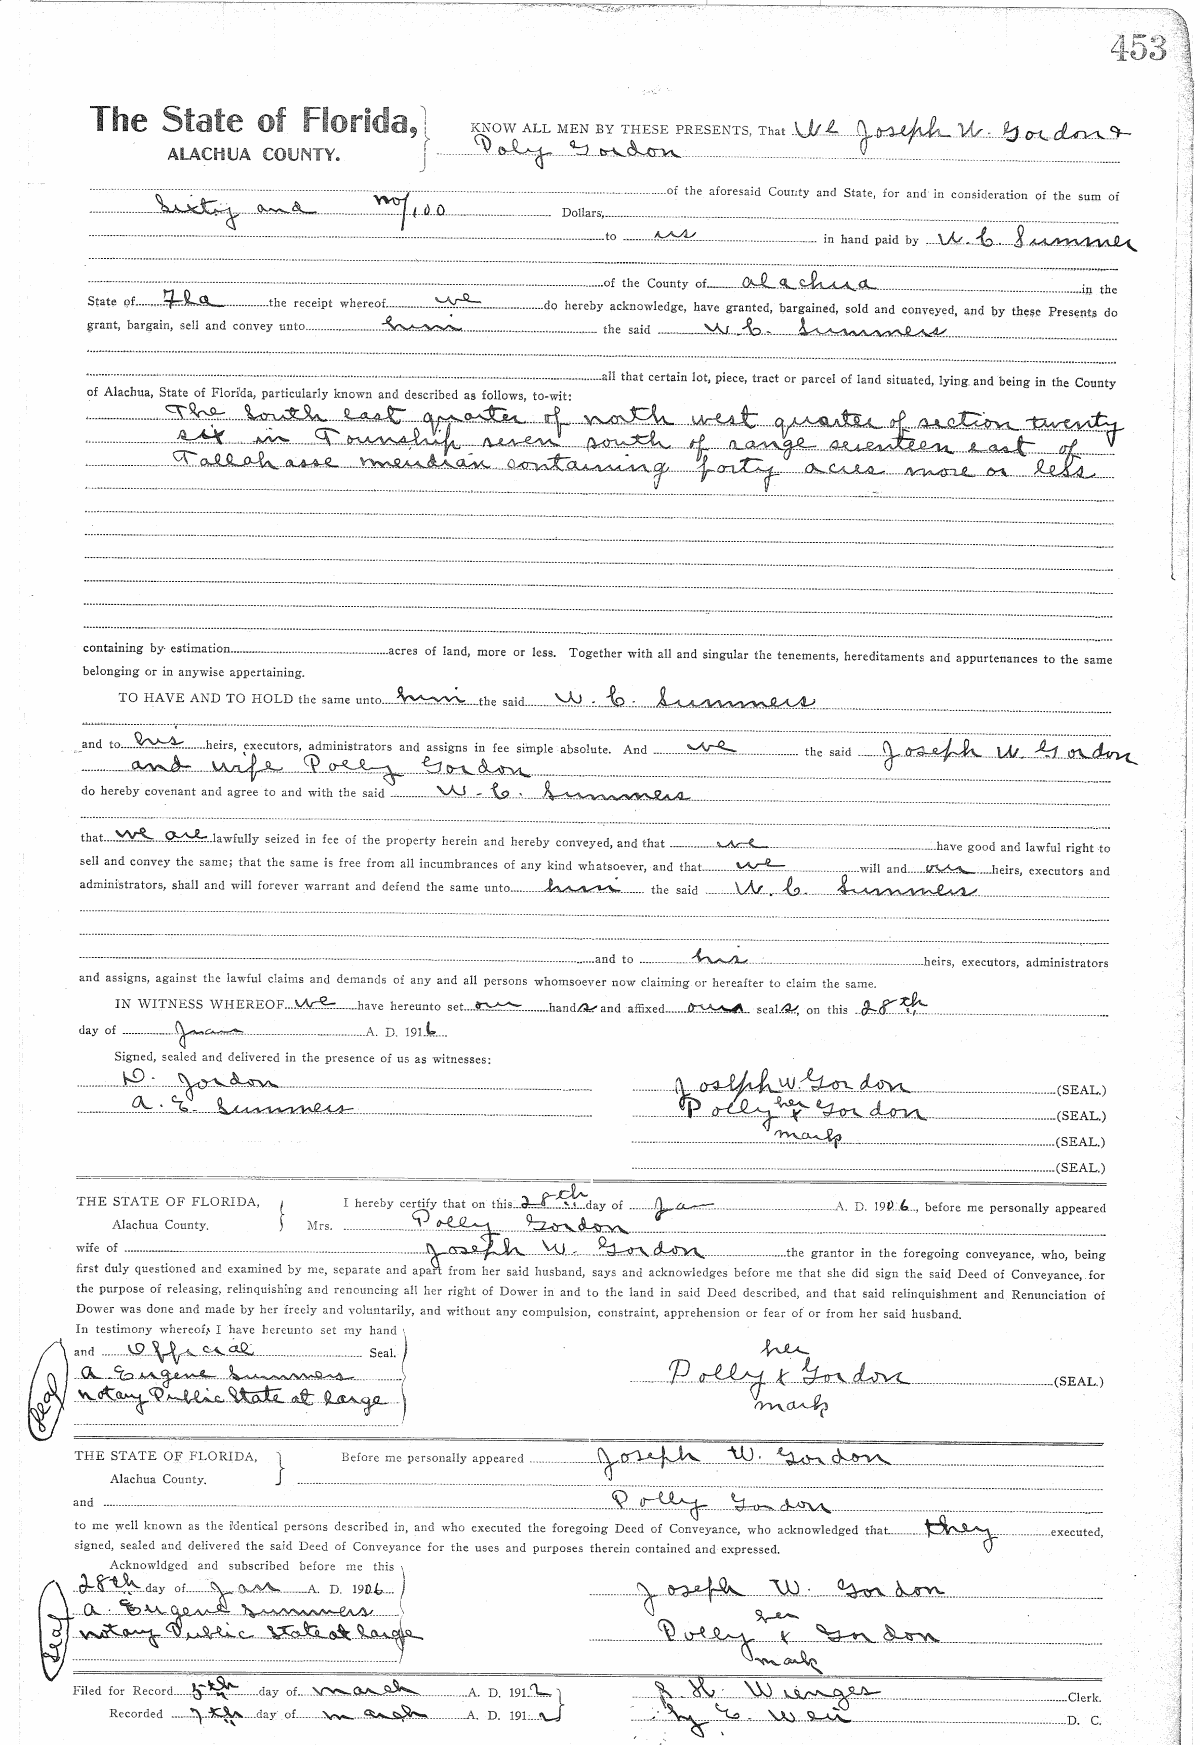 453
The State of Florida,
ALACHUA COUNTY.
KNOW ALL MEN BY THESE PRESENTS, That We Joseph W. Gordon &
Poly Gordon
of the aforesaid County and State, for and in consideration of the sum of
Sixty and no/100 Dollars,
to us in hand paid by W. C. Summer
of the County of Alachua in the
State of Fla the receipt whereof we do hereby acknowledge, have granted, bargained, sold and conveyed, and by these Presents do
grant, bargain, sell and convey unto him the said W. C. Summers
all that certain lot, piece, tract or parcel of land situated, lying and being in the County
of Alachua, State of Florida, particularly known and described as follows, to-wit:
The South east quarter of north west quarter of section twenty
six in Township seven south of range seventeen east of
Tallahasse meridian containing forty acres more or less
containing by estimation acres of land, more or less. Together with all and singular the tenements, hereditaments and appurtenances to the same
belonging or in anywise appertaining.
TO HAVE AND TO HOLD the same unto him the said W. C. Summers
and to his heirs, executors, administrators and assigns in fee simple absolute. And we the said Joseph W. Gordon
and wife Polly Gordon
do hereby covenant and agree to and with the said W. C. Summers
that we are lawfully seized in fee of the property herein and hereby conveyed, and that we have good and lawful right to
sell and convey the same; that the same is free from all incumbrances of any kind whatsoever, and that we will and our heirs, executors and
administrators, shall and will forever warrant and defend the same unto him the said W. C. Summers
and to his heirs, executors, administrators
and assigns, against the lawful claims and demands of any and all persons whomsoever now claiming or hereafter to claim the same.
IN WITNESS WHEREOF we have hereunto set our hands and affixed ours seals, on this 28th
day of A. D. 1916
Signed, sealed and delivered in the presence of us as witnesses:
D. Jordon
A. E. Summers
Joseph W. Gordon (SEAL.)
Polly her x Gordon (SEAL.)
mark (SEAL.)
(SEAL.)
THE STATE OF FLORIDA,
Alachua County.
I hereby certify that on this 28th day of Ja A. D. 1906, before me personally appeared
Mrs. Polly Gordon
wife of Joseph W. Gordon the grantor in the foregoing conveyance, who, being
first duly questioned and examined by me, separate and apart from her said husband, says and acknowledges before me that she did sign the said Deed of Conveyance, for
the purpose of releasing, relinquishing and renouncing all her right of Dower in and to the land in said Deed described, and that said relinquishment and Renunciation of
Dower was done and made by her freely and voluntarily, and without any compulsion, constraint, apprehension or fear of or from her said husband.
In testimony whereof, I have hereunto set my hand
and Official Seal.
A Eugene Summers
Notary Public State at large
Seal
her
Polly x Gordon (SEAL.)
mark
THE STATE OF FLORIDA,
Alachua County.
Before me personally appeared Joseph W. Gordon
and Polly Gordon
to me well known as the identical persons described in, and who executed the foregoing Deed of Conveyance, who acknowledged that they executed,
signed, sealed and delivered the said Deed of Conveyance for the uses and purposes therein contained and expressed.
Acknowldged and subscribed before me this
28th day of Jan A. D. 1906
A Eugene Summers
Notary Public State at large
Seal
Joseph W. Gordon
her
Polly x Gordon
mark
Filed for Record 5th day of March A. D. 1912 S. H. Wienges Clerk.
Recorded 7th day of March A. D. 1912 by E. Weir D. C.